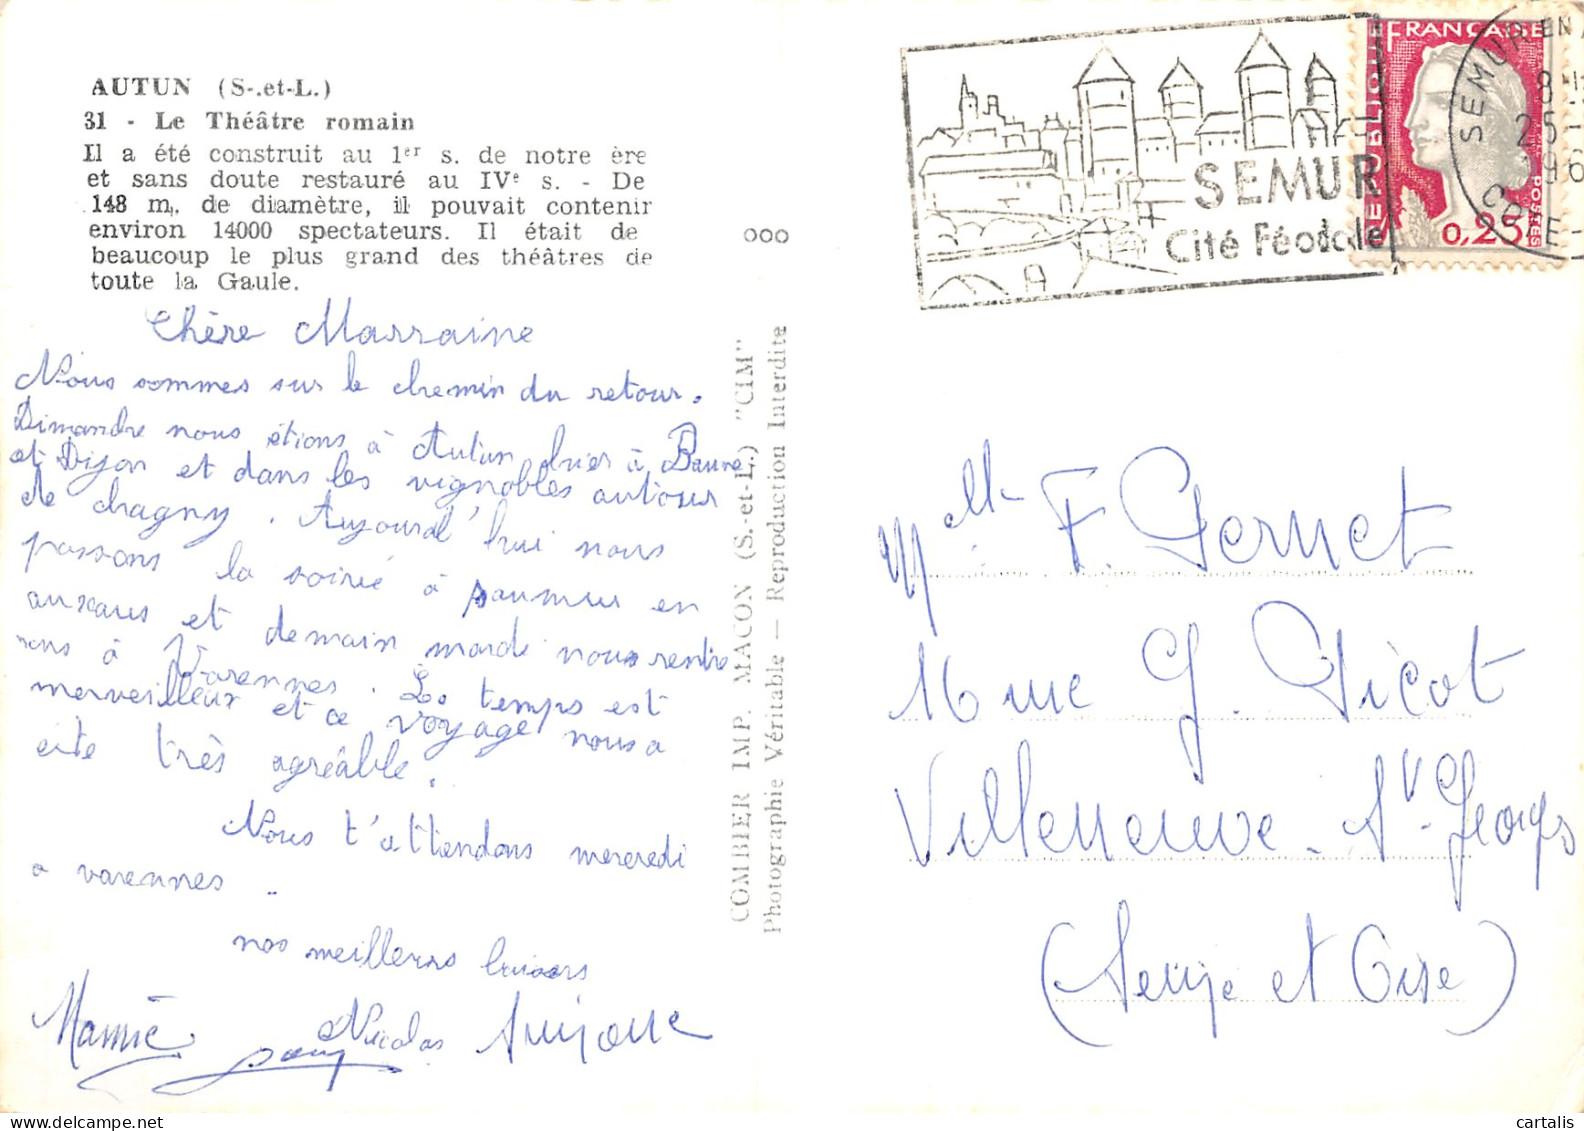 AUTUN (S-.et-L.)
31 - Le Théâtre romain
Il a été construit au 1er s. de notre ère
et sans doute restauré au IVe s. - De
148 m. de diamètre, il pouvait contenir
environ 14000 spectateurs. Il était de
beaucoup le plus grand des théâtres de
toute la Gaule.
Chère Marraine
Nous sommes sur le chemin du retour.
Dimandre nous étions à Autun hier à Baune
et Dijon et dans les vignobles autour
de chagny. Aujourd'hui nous
passons la soirié à saumur en
auxois et demain mardi nous rentre
rons à Varennes. Le temps est
merveilleux et ce voyage nous a
été très agréable.
Nous t'attendons mercredi
a varennes.
nos meilleurs baisers
Mamie Nicolas
ooo
COMBIER IMP. MACON (S.-et-L.) "CIM"
Photographie Véritable — Reproduction Interdite
SEMUR
Cité Féodale
REPUBLIQUE FRANÇAISE
POSTES
0,25
SEMUR EN
25-
196
COTE-
Mlle F. Gernet
16 rue G. Picot
Villeneuve St Georges
(Seine et Oise)
cartalis